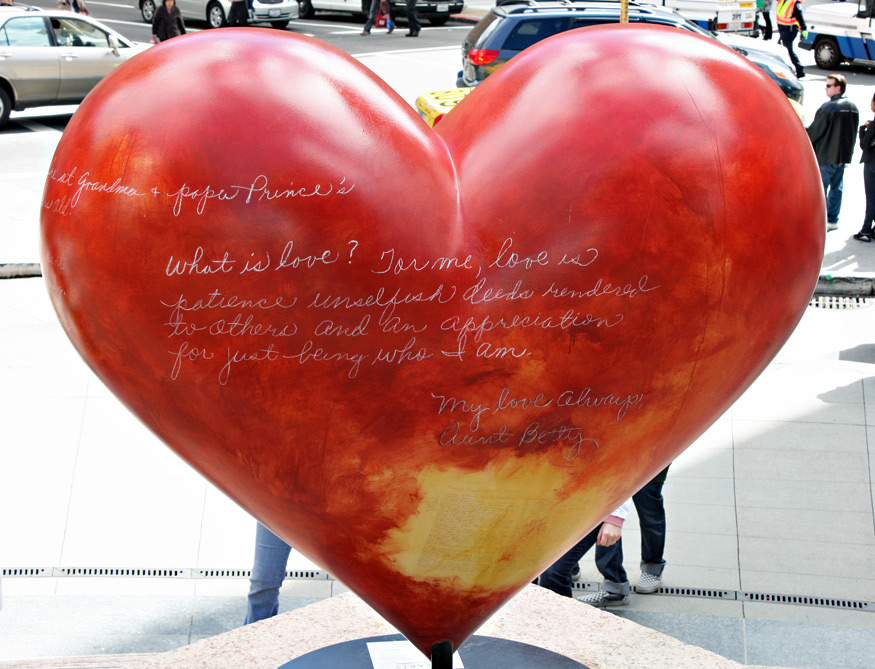 at Grandma + papa Prince's
What is love? For me, love is
patience unselfish deeds rendered
to others and an appreciation
for just being who I am.
My love always,
Aunt Betty